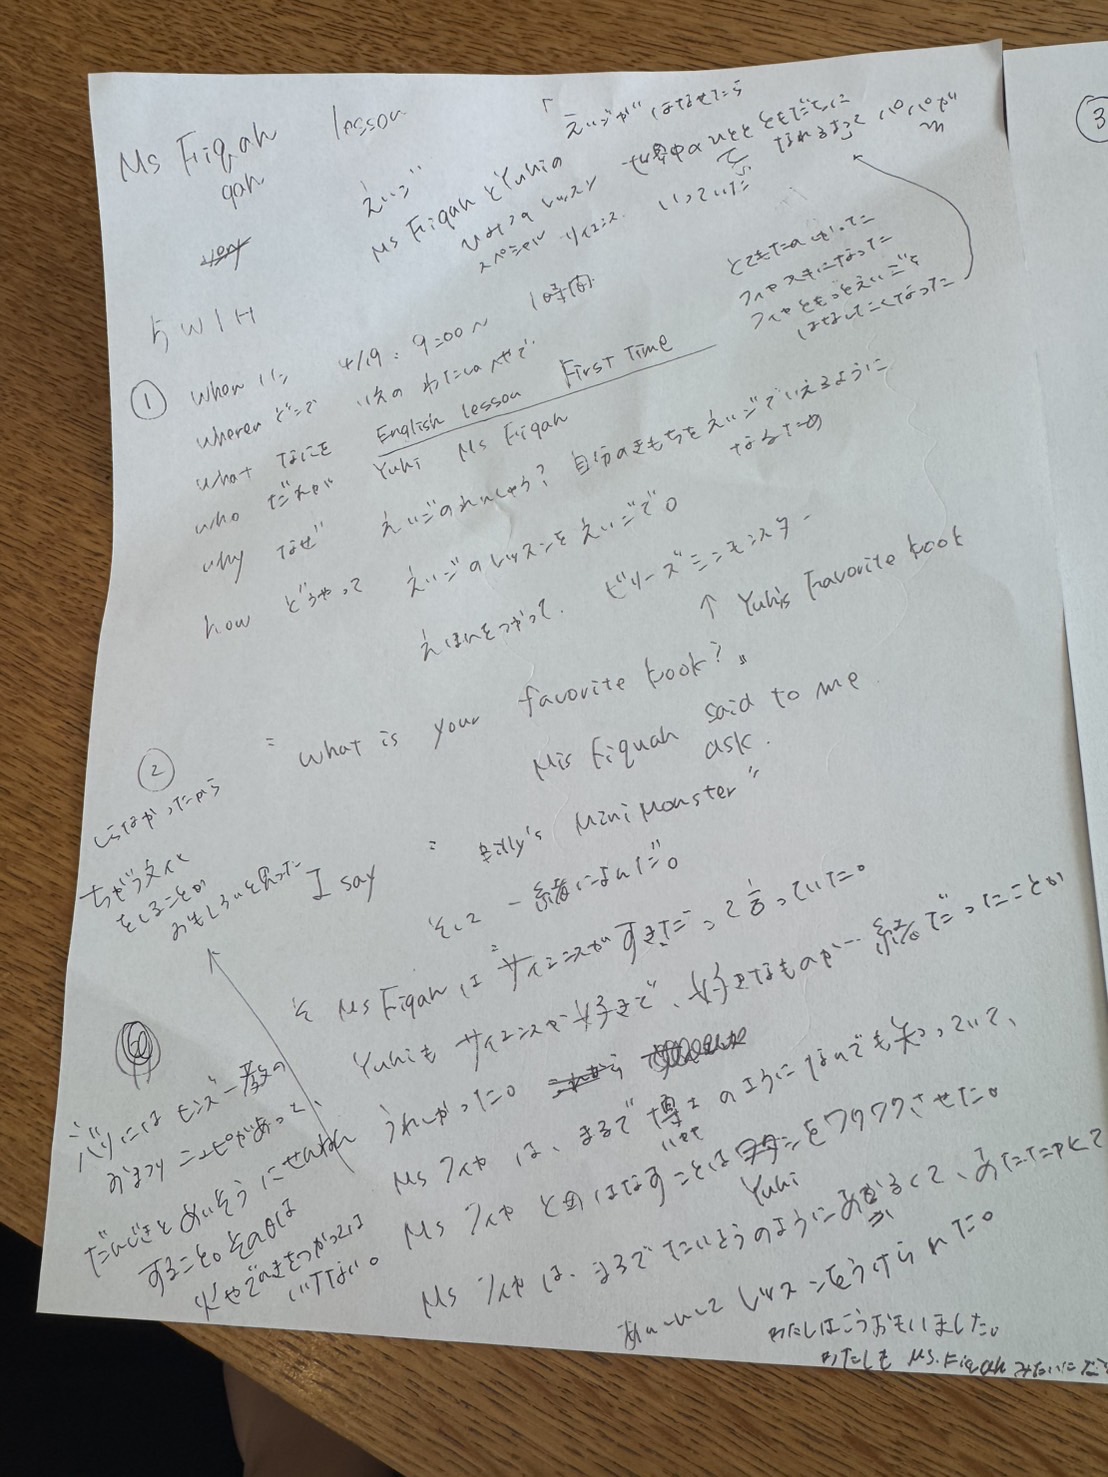 Ms Fiqah lesson
qah
very
「えいごがはなせたら
世界中のひととともだちに
なれるよって パパが
いっていた
えいご
Ms FiqahとYuhiの
ひみつのレッスン
スペシャル サイエンス
とてもたのしかった
フィカ 大すきになった
フィカともっとえいごを
はなしたくなった
5W1H
① When いつ 4/19 : 9:00〜 1時間
where どこで いえの わたしのへやで
what なにを English lesson First Time
who だれが Yuhi Ms Fiqah
why なぜ えいごのれんしゅう? 自分のきもちをえいごでいえるように
なるため
how どうやって えいごのレッスンをえいごで。
えほんをつかって. ビリーズミニモンスター
↑ Yuhi's Favorite book
② " What is your favorite book? "
Mis Fiquah said to me.
ask.
I say " Billy's Mini Monster "
そして一緒によんだ。
しらなかったから
ちがう文化
をしることが
おもしろいと思った
Ms Fiqahは"サイエンスがすきだ"って言っていた。
Yuhiもサイエンスが好きで、好きなものが一緒だったことが
うれしかった。 これから
Ms フィカは、まるで博士のようになんでも知っていて、
はかせ
Ms フィカとのはなすことは Yuhiをワクワクさせた。
Ms フィカは、まるでたいようのようにあかるくて、あたたかくて
あんしんしてレッスンをうけられた。
わたしはこうおもいました。
わたしも Ms. Fiqahみたいに
バリには
おまつり ニュピがあって、
だんじきとめいそうにせんねん
すること。その日は
火やでんきをつかっては
いけない。
③